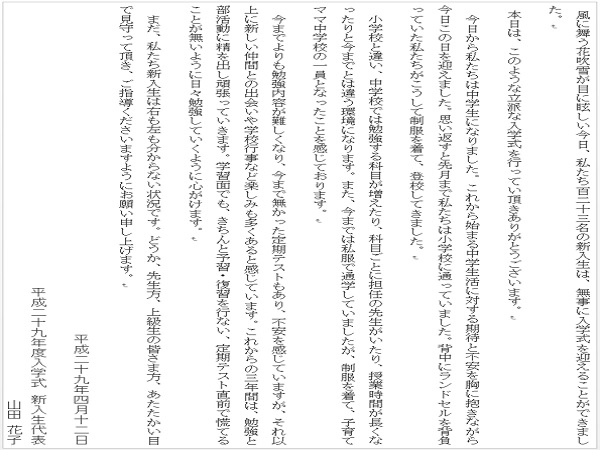 風に舞う花吹雪が目に眩しい今日、私たち百二十三名の新入生は、無事に入学式を迎えることができまし
た。
本日は、このような立派な入学式を行って頂きありがとうございます。
今日から私たちは中学生になりました。これから始まる中学生活に対する期待と不安を胸に抱きながら
今日この日を迎えました。思い返すと先月まで私たちは小学校に通っていました。背中にランドセルを背負
っていた私たちがこうして制服を着て、登校してきました。
小学校と違い、中学校では勉強する科目が増えたり、科目ごとに担任の先生がいたり、授業時間が長くな
ったりと今までとは違う環境になります。また、今までは私服で通学していましたが、制服を着て、子育て
ママ中学校の一員となったことを感じております。
今までよりも勉強内容が難しくなり、今まで無かった定期テストもあり、不安を感じていますが、それ以
上に新しい仲間との出会いや学校行事など楽しみも多くあると感じています。これからの三年間は、勉強と
部活動に精を出し頑張っていきます。学習面でも、きちんと予習・復習を行ない、定期テスト直前で慌てる
ことが無いように日々勉強していくように心がけます。
まだ、私たち新入生は右も左も分からない状況です。どうか、先生方、上級生の皆さま方、あたたかい目
で見守って頂き、ご指導くださいますようにお願い申し上げます。
平成二十九年四月十二日
平成二十九年度入学式 新入生代表
山田 花子